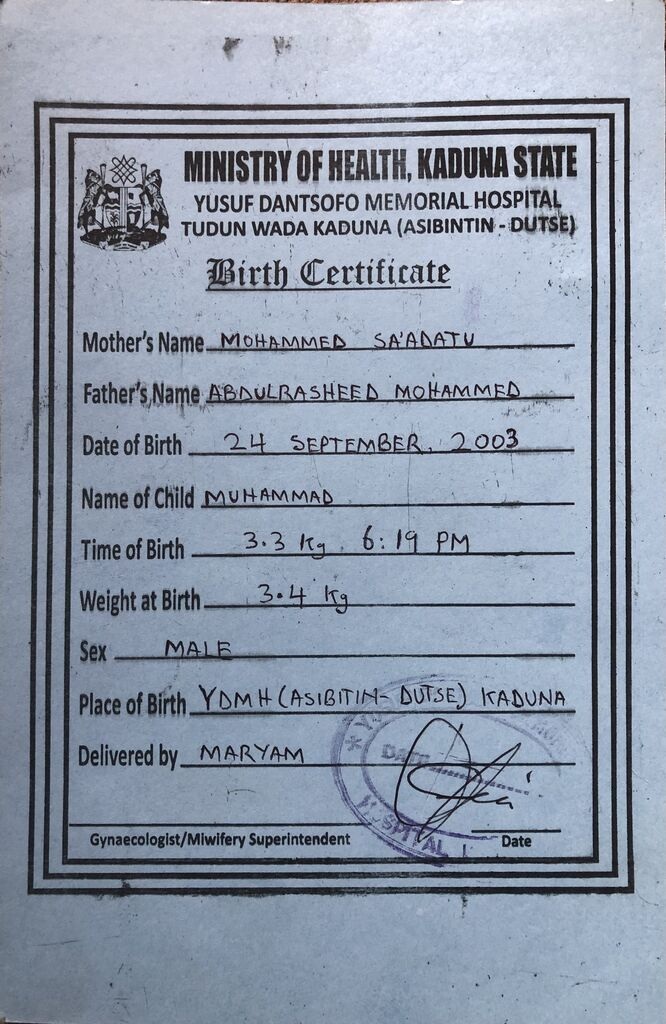 MINISTRY OF HEALTH, KADUNA STATE
YUSUF DANTSOFO MEMORIAL HOSPITAL
TUDUN WADA KADUNA (ASIBINTIN - DUTSE)
Birth Certificate
Mother's Name MOHAMMED SA'ADATU
Father's Name ABDULRASHEED MOHAMMED
Date of Birth 24 SEPTEMBER, 2003
Name of Child MUHAMMAD
Time of Birth 3.3 kg 6:19 PM
Weight at Birth 3.4 kg
Sex MALE
Place of Birth YDMH (ASIBITIN- DUTSE) KADUNA
Delivered by MARYAM
DATE
HOSPITAL
Gynaecologist/Miwifery Superintendent Date